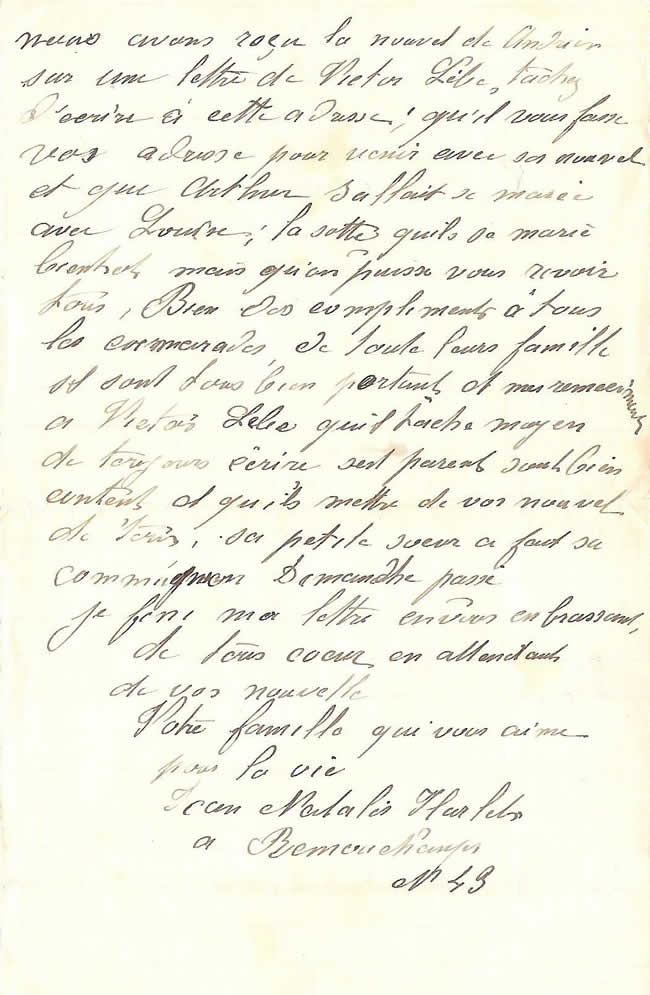 nous avons reçu la nouvel de Andrien
sur une lettre de Victor Lebe, tâchez
d'ecrire à cette adresse; qu'il vous fasse
vos adresse pour venir avec sa nouvel
et que Arthur sallait se marie
avec Louise; la sotte qu'ils se marie
bientot mais qu'on puisse vous revoir
tous, Bien des compliments à tous
les camarades, de toute leurs famille
il sont tous bien portant et mes remerciments
a Victor Lebe qu'il tâche moyen
de toujours écrire ses parents sont bien
contents et qu'ils mettre de vos nouvel
de tous, sa petite soeur a fait sa
communion Dimanche passé
je fini ma lettre en vous enbrassant,
de tous coeur en attendant
de vos nouvelle
Votre famille qui vous aime
pour la vie
Jean Natalis
a Remouchamps
N° 43